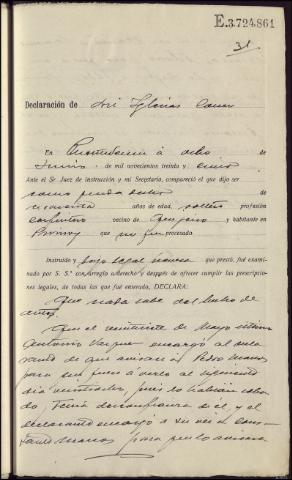 E.3.724.861
31
Declaración de José Iglesias
En á ocho de
Junio de mil novecientos treinta y cinco
Ante el Sr. Juez de instrucción y mi Secretaría, compareció el que dijo ser
como queda dicho de
cincuenta años de edad, soltero profesión
carpintero vecino de y habitante en
que no fué procesado
Instruído y bajo legal que prestó, fué examinado
por S. S.ª con arreglo a derecho y después de ofrecer cumplir las prescripciones
legales, de todas las que fué enterado, DECLARA:
Que nada sabe del hecho de
autos.
Que el veintisiete de Mayo último
Antonio Vazquez encargó al decla
rante de que avisara á Pedro
para que fuera á verlo al siguiente
día pues lo habían
do, Tenía desconfianza de él, y el
declarante encargó a su vez á
para que lo avisara